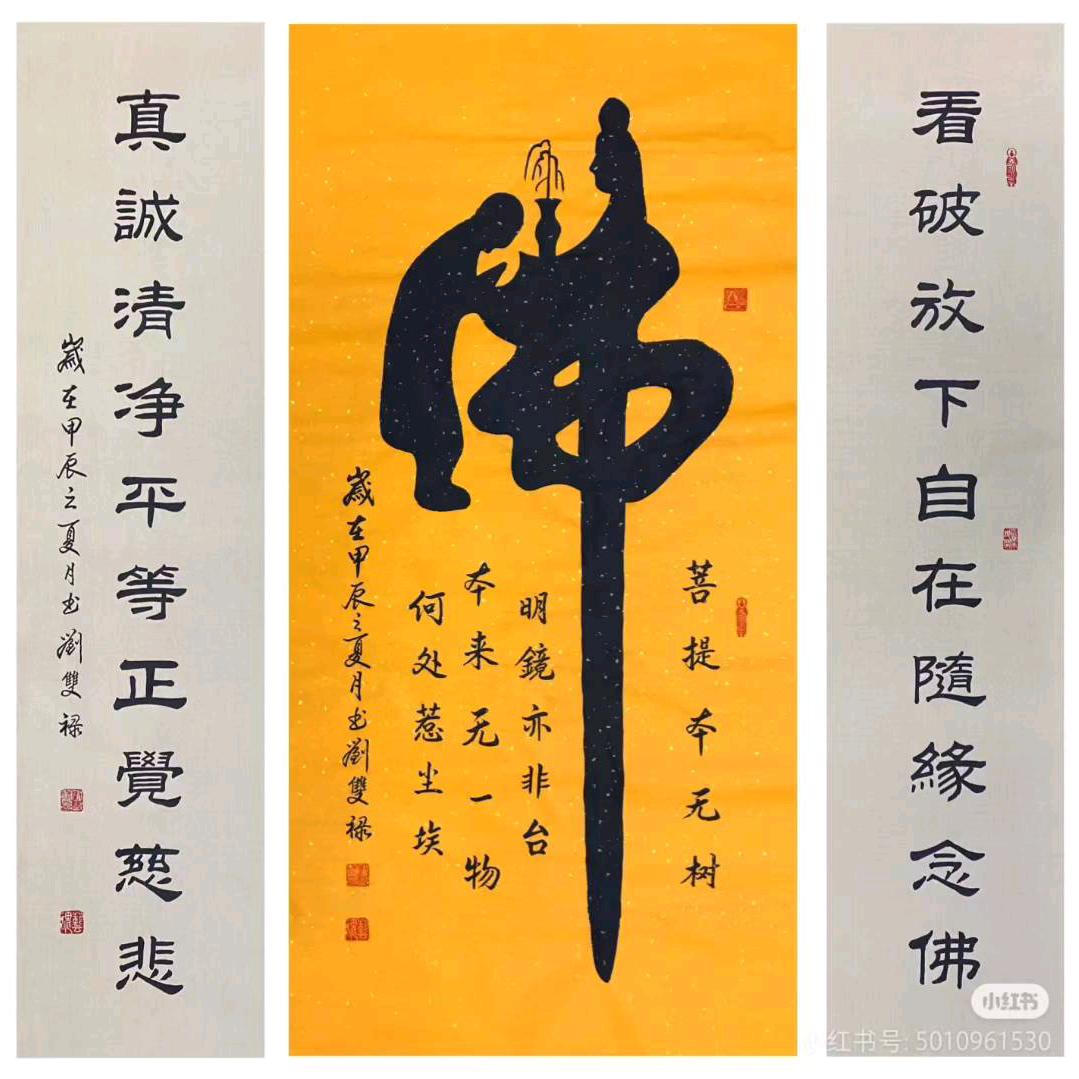 看破放下自在隨緣念佛
佛
菩提本无树
明鏡亦非台
本来无一物
何处惹尘埃
歲在甲辰之夏月书劉雙禄
真誠清净平等正覺慈悲
歲在甲辰之夏月书劉雙禄
小红书
小红书号: 5010961530